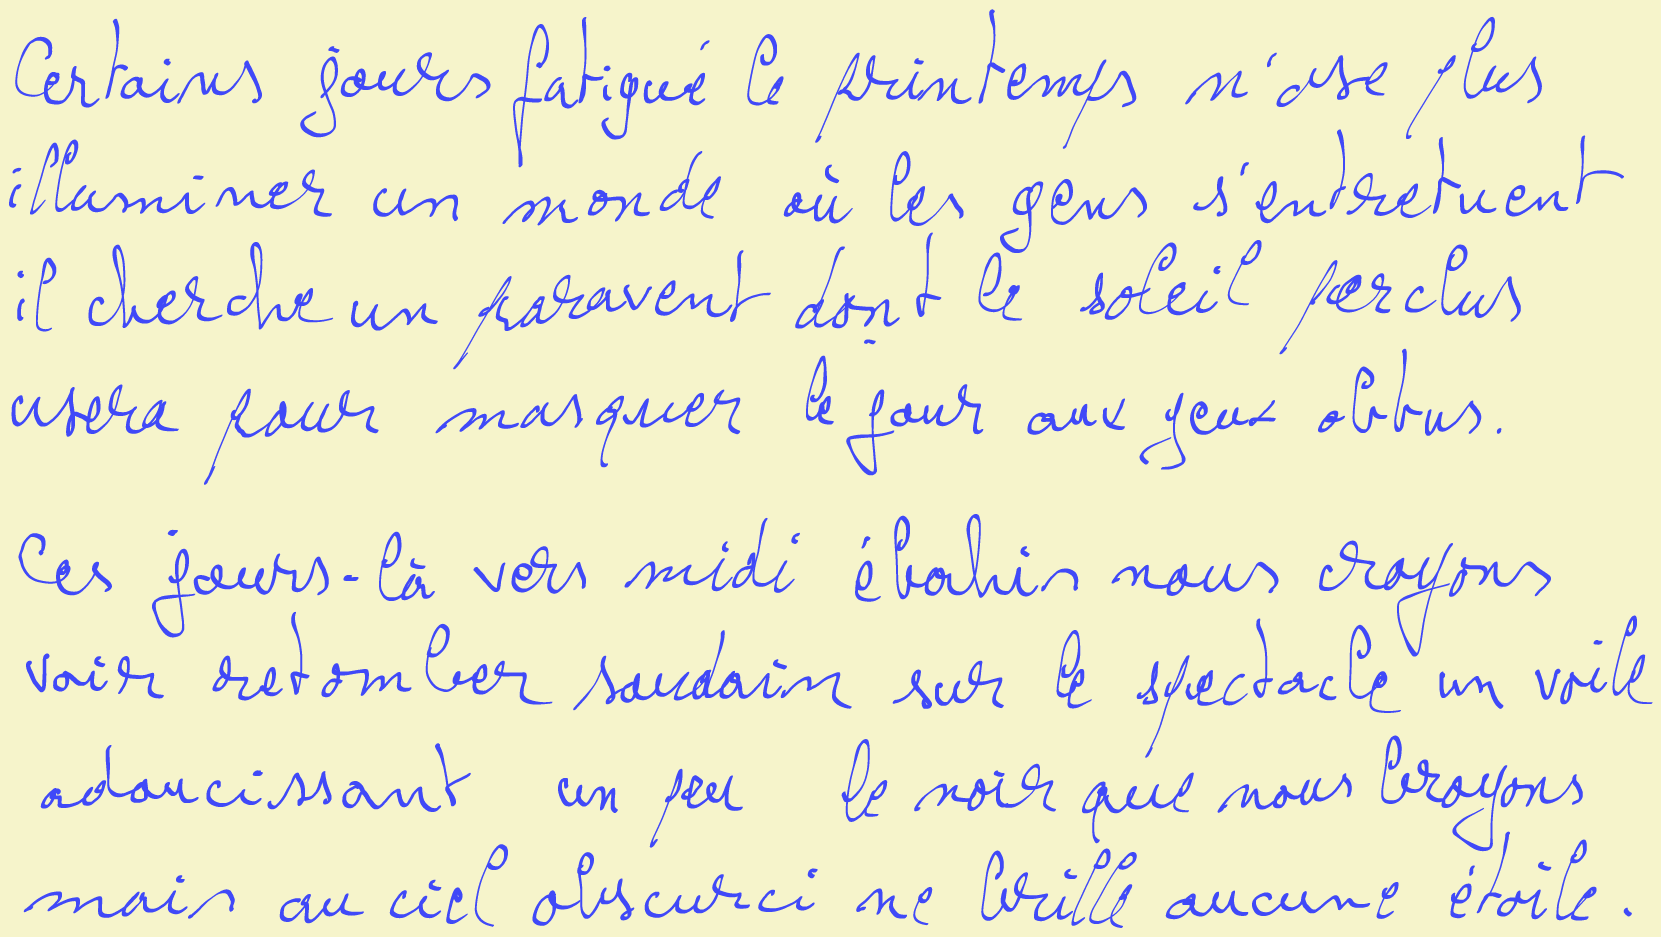 Certains jours fatigué le printemps n'ose plus
illuminer un monde où les gens s'entretuent
il cherche un paravent dont le soleil perclus
usera pour masquer le jour aux yeux obtus.
Ces jours-là vers midi ébahis nous croyons
voir retomber soudain sur le spectacle un voile
adoucissant un peu le noir que nous broyons
mais au ciel obscurci ne brille aucune étoile.